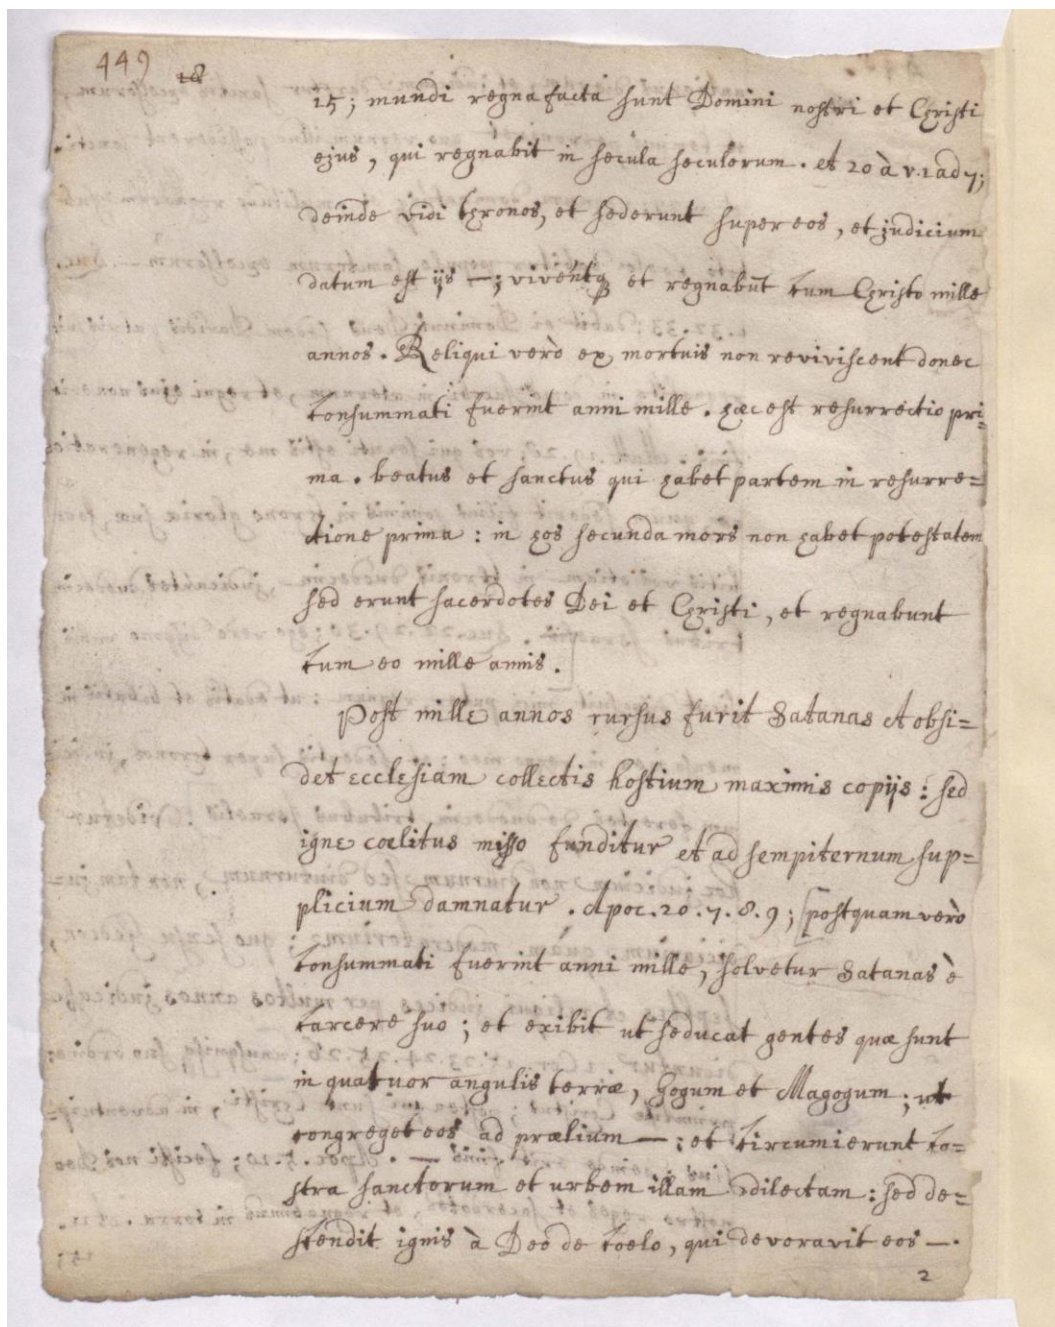 449
18
15; mundi regna facta sunt Domini nostri et Christi
ejus, qui regnabit in secula seculorum. et 20 à v. 1 ad 7;
deinde vidi thronos, et sederunt super eos, et judicium
datum est ijs —; viventq et regnabūt cum Christo mille
annos. Reliqui verò ex mortuis non reviviscent donec
consummati fuerint anni mille. hæc est resurrectio pri=
ma. beatus et sanctus qui habet partem in resurre=
ctione prima: in hos secunda mors non habet potestatem
sed erunt sacerdotes Dei et Christi, et regnabunt
cum eo mille annis.
Post mille annos rursus furit Satanas et obsi=
det ecclesiam collectis hostium maximis copijs: sed
igne cœlitus misso funditur et ad sempiternum sup=
plicium damnatur. Apoc. 20. 7. 8. 9; [postquam verò
consummati fuerint anni mille, solvetur Satanas è
carcere suo; et exibit ut seducat gentes quæ sunt
in quatuor angulis terræ, Gogum et Magogum; ut
congreget eos ad prælium —; et circumierunt ca=
stra sanctorum et urbem illam dilectam: sed de=
scendit ignis à Deo de coelo, qui devoravit eos —.
2